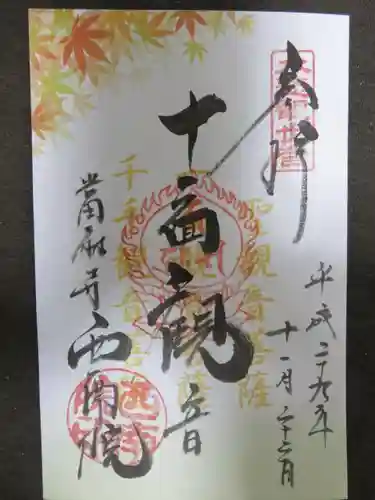 奉拝
平成二十九年
十一月二十二日
聖観音菩薩
十一面観音
千手観音菩薩
當麻寺
西南院